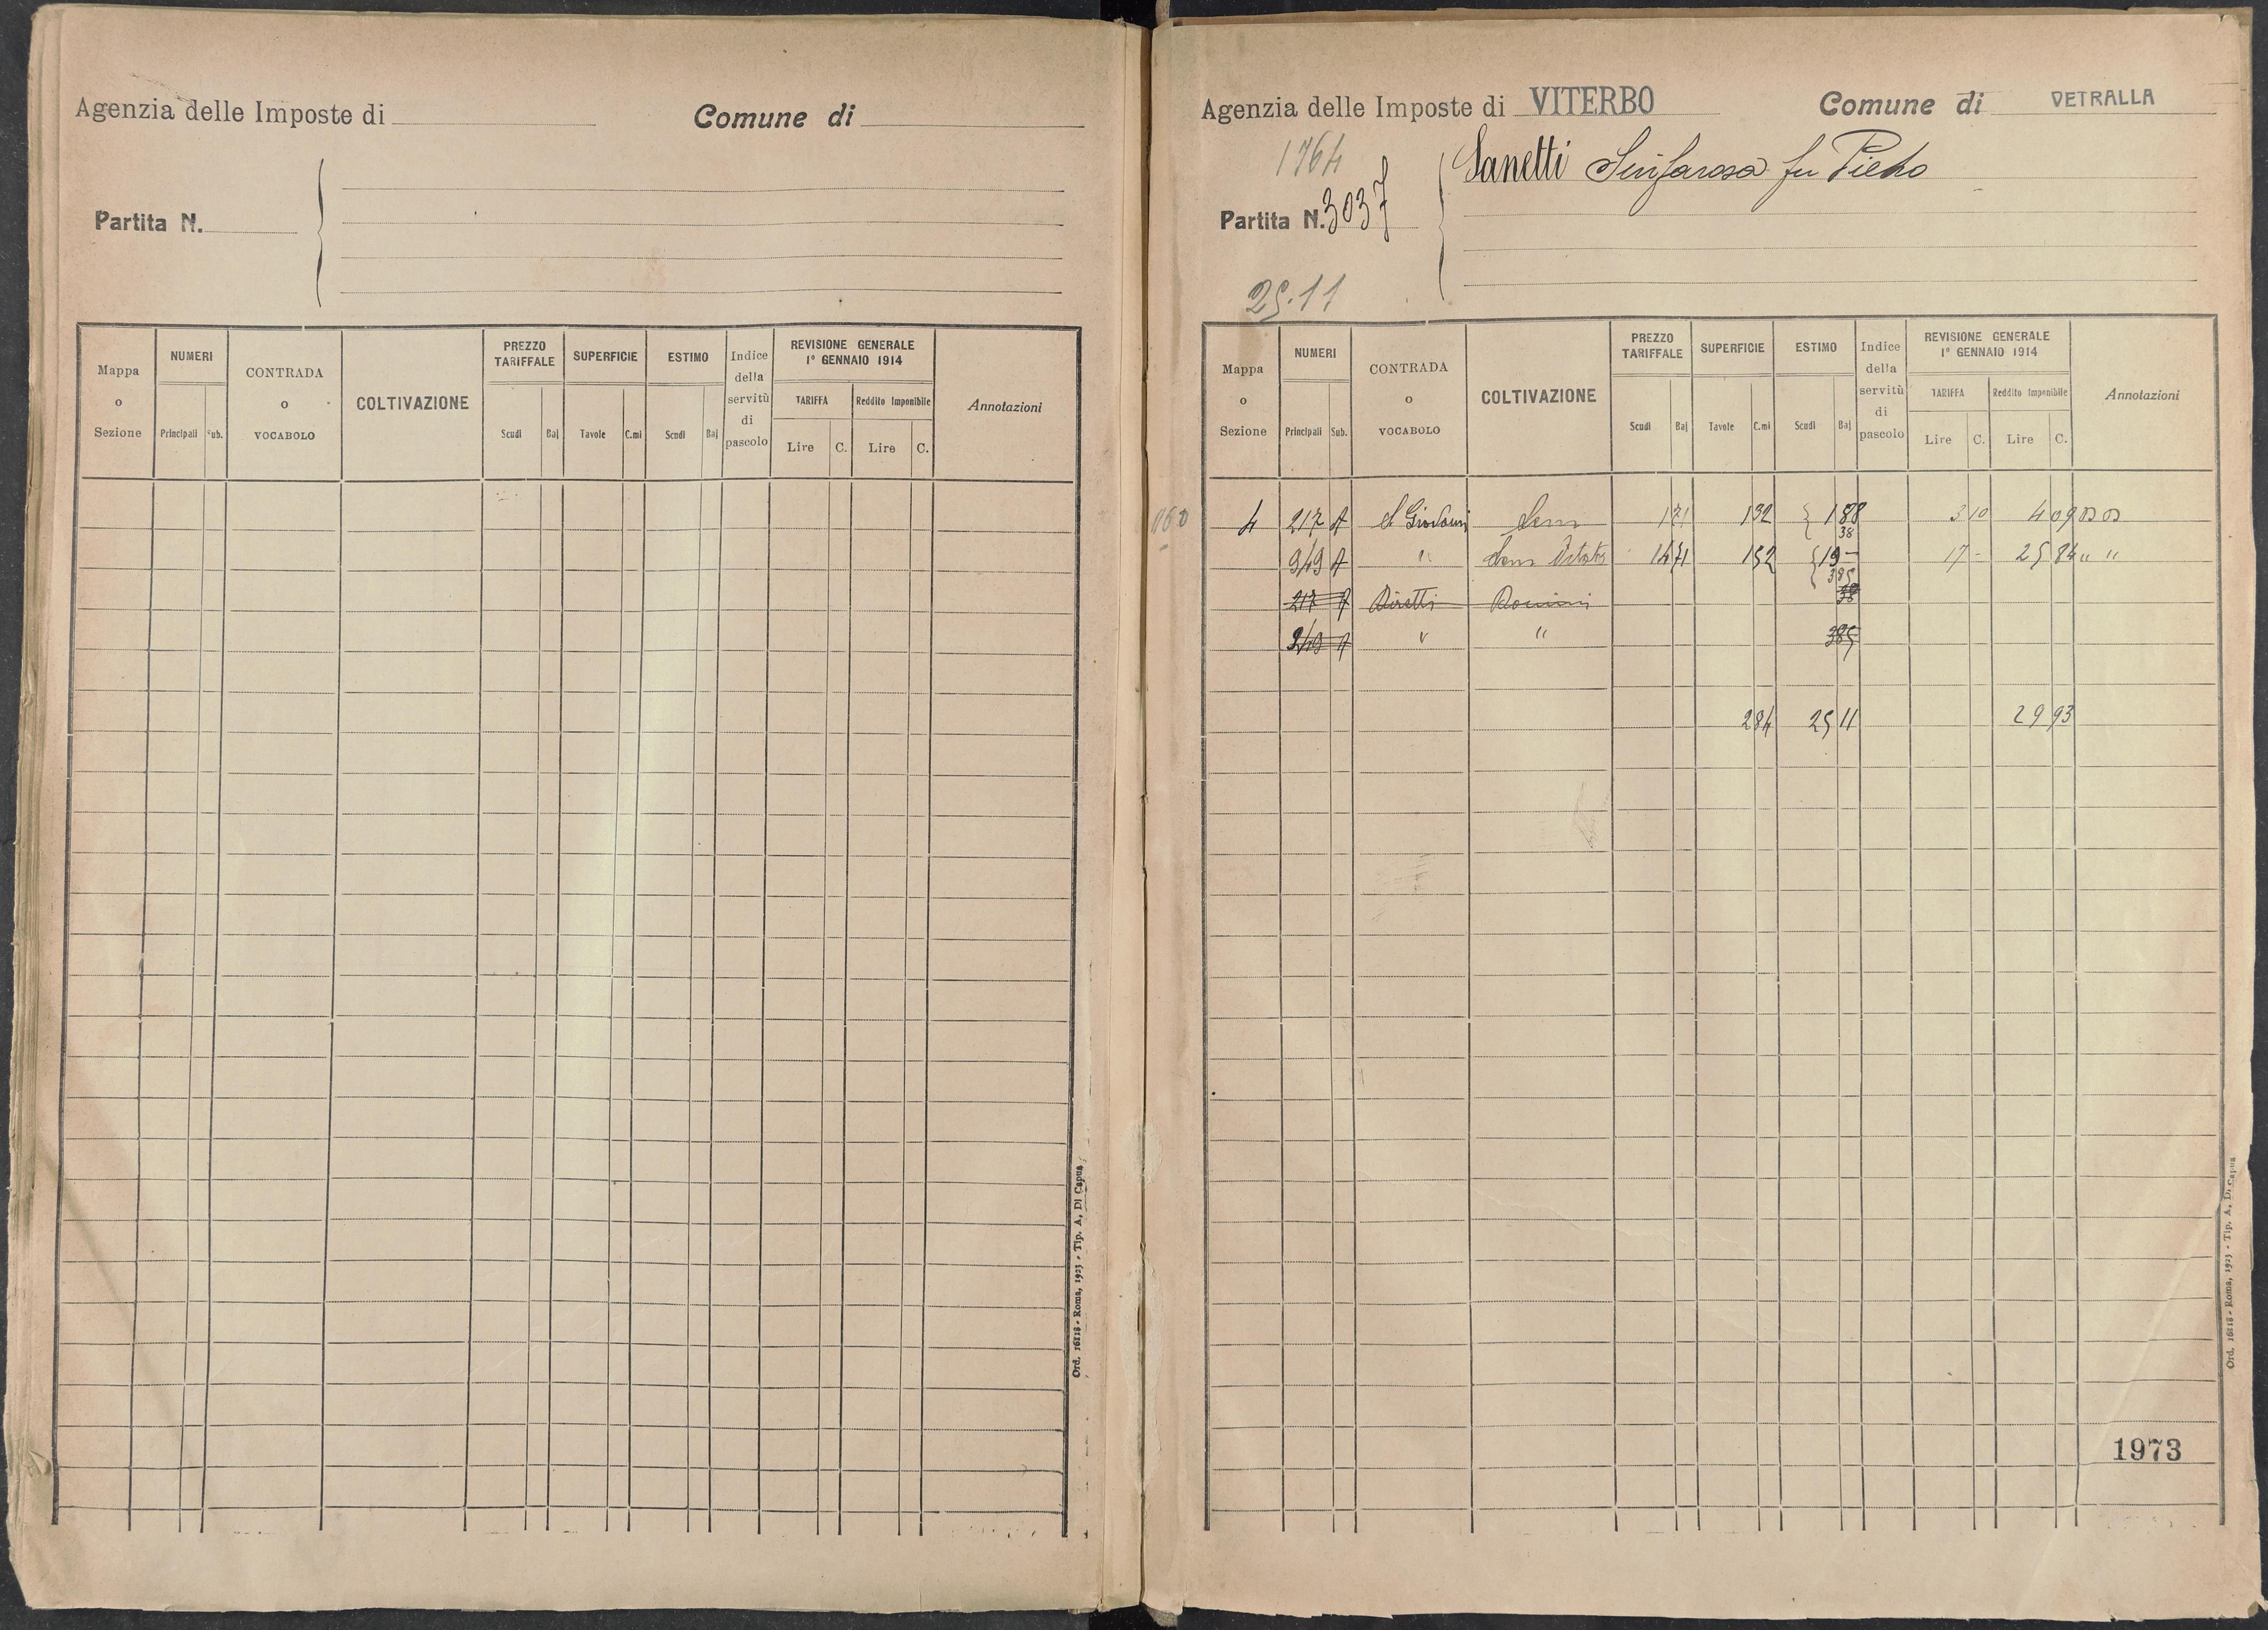 Agenzia delle Imposte di
Comune di
Partita N.
Mappa o Sezione
NUMERI
Principali
Sub.
CONTRADA o VOCABOLO
COLTIVAZIONE
PREZZO TARIFFALE
Scudi
Baj
SUPERFICIE
Tavole
C.mi
ESTIMO
Scudi
Baj
Indice della servitù di pascolo
REVISIONE GENERALE
1° GENNAIO 1914
TARIFFA
Lire
C.
Reddito Imponibile
Lire
C.
Annotazioni
Ord. 16118 - Roma, 1923 - Tip. A. Di Capua
Agenzia delle Imposte di VITERBO
Comune di VETRALLA
1764
Partita N. 3037
Sanetti Sinfarosa fu Pietro
25.11
Mappa o Sezione
NUMERI
Principali
Sub.
CONTRADA o VOCABOLO
COLTIVAZIONE
PREZZO TARIFFALE
Scudi
Baj
SUPERFICIE
Tavole
C.mi
ESTIMO
Scudi
Baj
Indice della servitù di pascolo
REVISIONE GENERALE
1° GENNAIO 1914
TARIFFA
Lire
C.
Reddito Imponibile
Lire
C.
Annotazioni
4 217 A S Giovanni Sem 1 71 1 32 { 1 88 3 10 4 09
38
949 A " Sem 14 71 1 52 { 19 - 17 - 25 84 " "
385
217 A Diretti Domini 38
949 A " " 385
2 84 25 11 29 93
1973
Ord. 16118 - Roma, 1923 - Tip. A. Di Capua